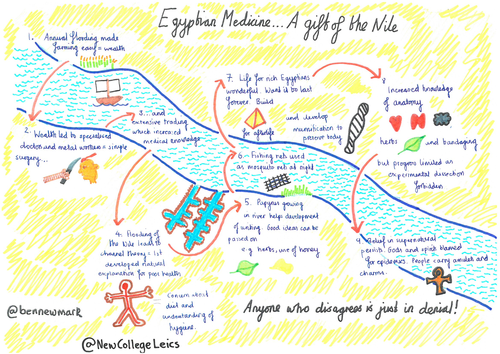 Egyptian Medicine... A gift of the Nile
1. Annual flooding made
farming easy = wealth
2. Wealth led to specialised
doctors and metal workers = simple
surgery...
3. ...and
extensive trading
which increased
medical knowledge
4. Flooding of
the Nile leads to
channel theory = 1st
developed natural
explanation for poor health
= concern about
diet and
understanding of
hygiene.
5. Papyrus growing
in river helps development
of writing. Good ideas can be
passed on
e.g. herbs, use of honey
6. Fishing nets used
as mosquito nets at night
7. Life for rich Egyptians
wonderful. Want it to last
forever. Build
for afterlife
and develop
mummification to
preserve body
8
Increased knowledge
of anatomy
herbs
and bandaging
but progress limited as
experimental dissection
forbidden
9. Belief in supernatural
Gods and spirits blamed
for epidemics. People carry amulets and
charms.
Anyone who disagrees is just in denial!
@bennewmark
@NewCollegeLeics